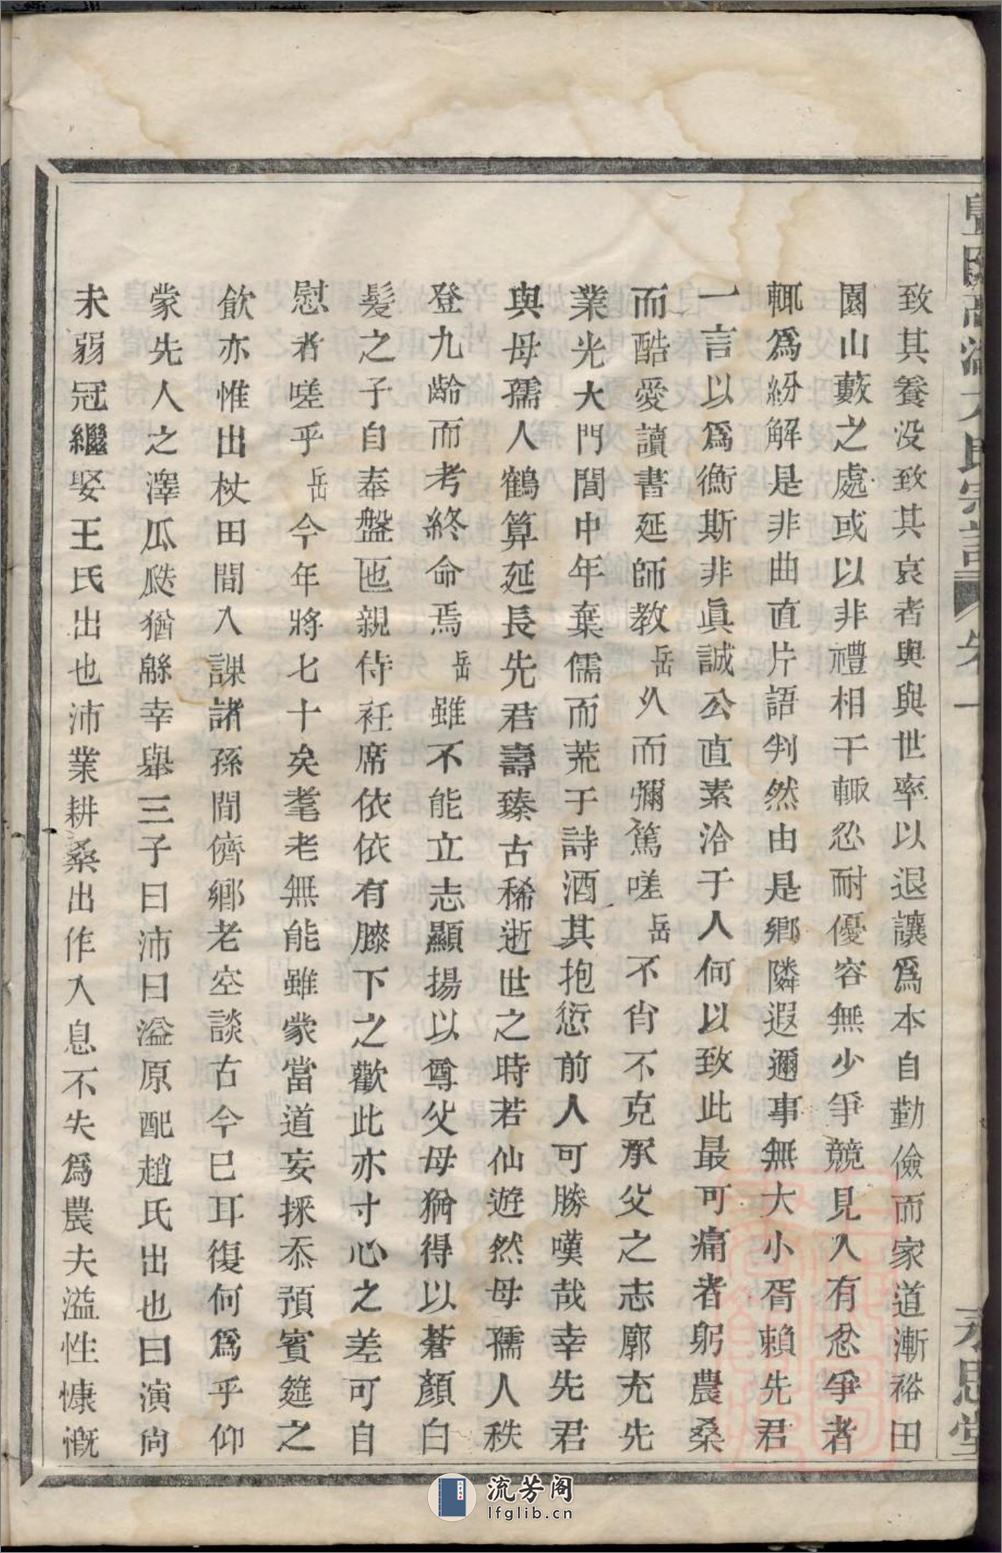 致其養没致其哀者與與世率以退讓爲本自勤儉而家道漸裕田
園山藪之處或以非禮相干輒忍耐優容無少爭競見人有忿爭者
輒爲紛解是非曲直片語判然由是鄉隣遐邇事無大小胥賴先君
一言以爲衡斯非眞誠公直素洽于人何以致此最可痛者躬農桑
而酷愛讀書延師教岳久而彌篤嗟岳不肖不克承父之志廓充先
業光大門閭中年棄儒而荒于詩酒其抱愆前人可勝嘆哉幸先君
與母孺人鶴算延長先君壽臻古稀逝世之時若仙遊然母孺人秩
登九齡而考終命焉岳雖不能立志顯揚以尊父母猶得以蒼顏白
髮之子自奉盤匜親侍衽席依依有膝下之歡此亦寸心之差可自
慰者嗟乎岳今年將七十矣耄老無能雖蒙當道妄採忝預賓筵之
飲亦惟出杖田間入課諸孫間儕鄉老空談古今已耳復何爲乎仰
蒙先人之澤瓜瓞猶緜幸舉三子曰沛曰溢原配趙氏出也曰演尙
未弱冠繼娶王氏出也沛業耕桑出作入息不失爲農夫溢性慷慨
氏宗譜
卷一
思堂
流芳阁
lfglib.cn